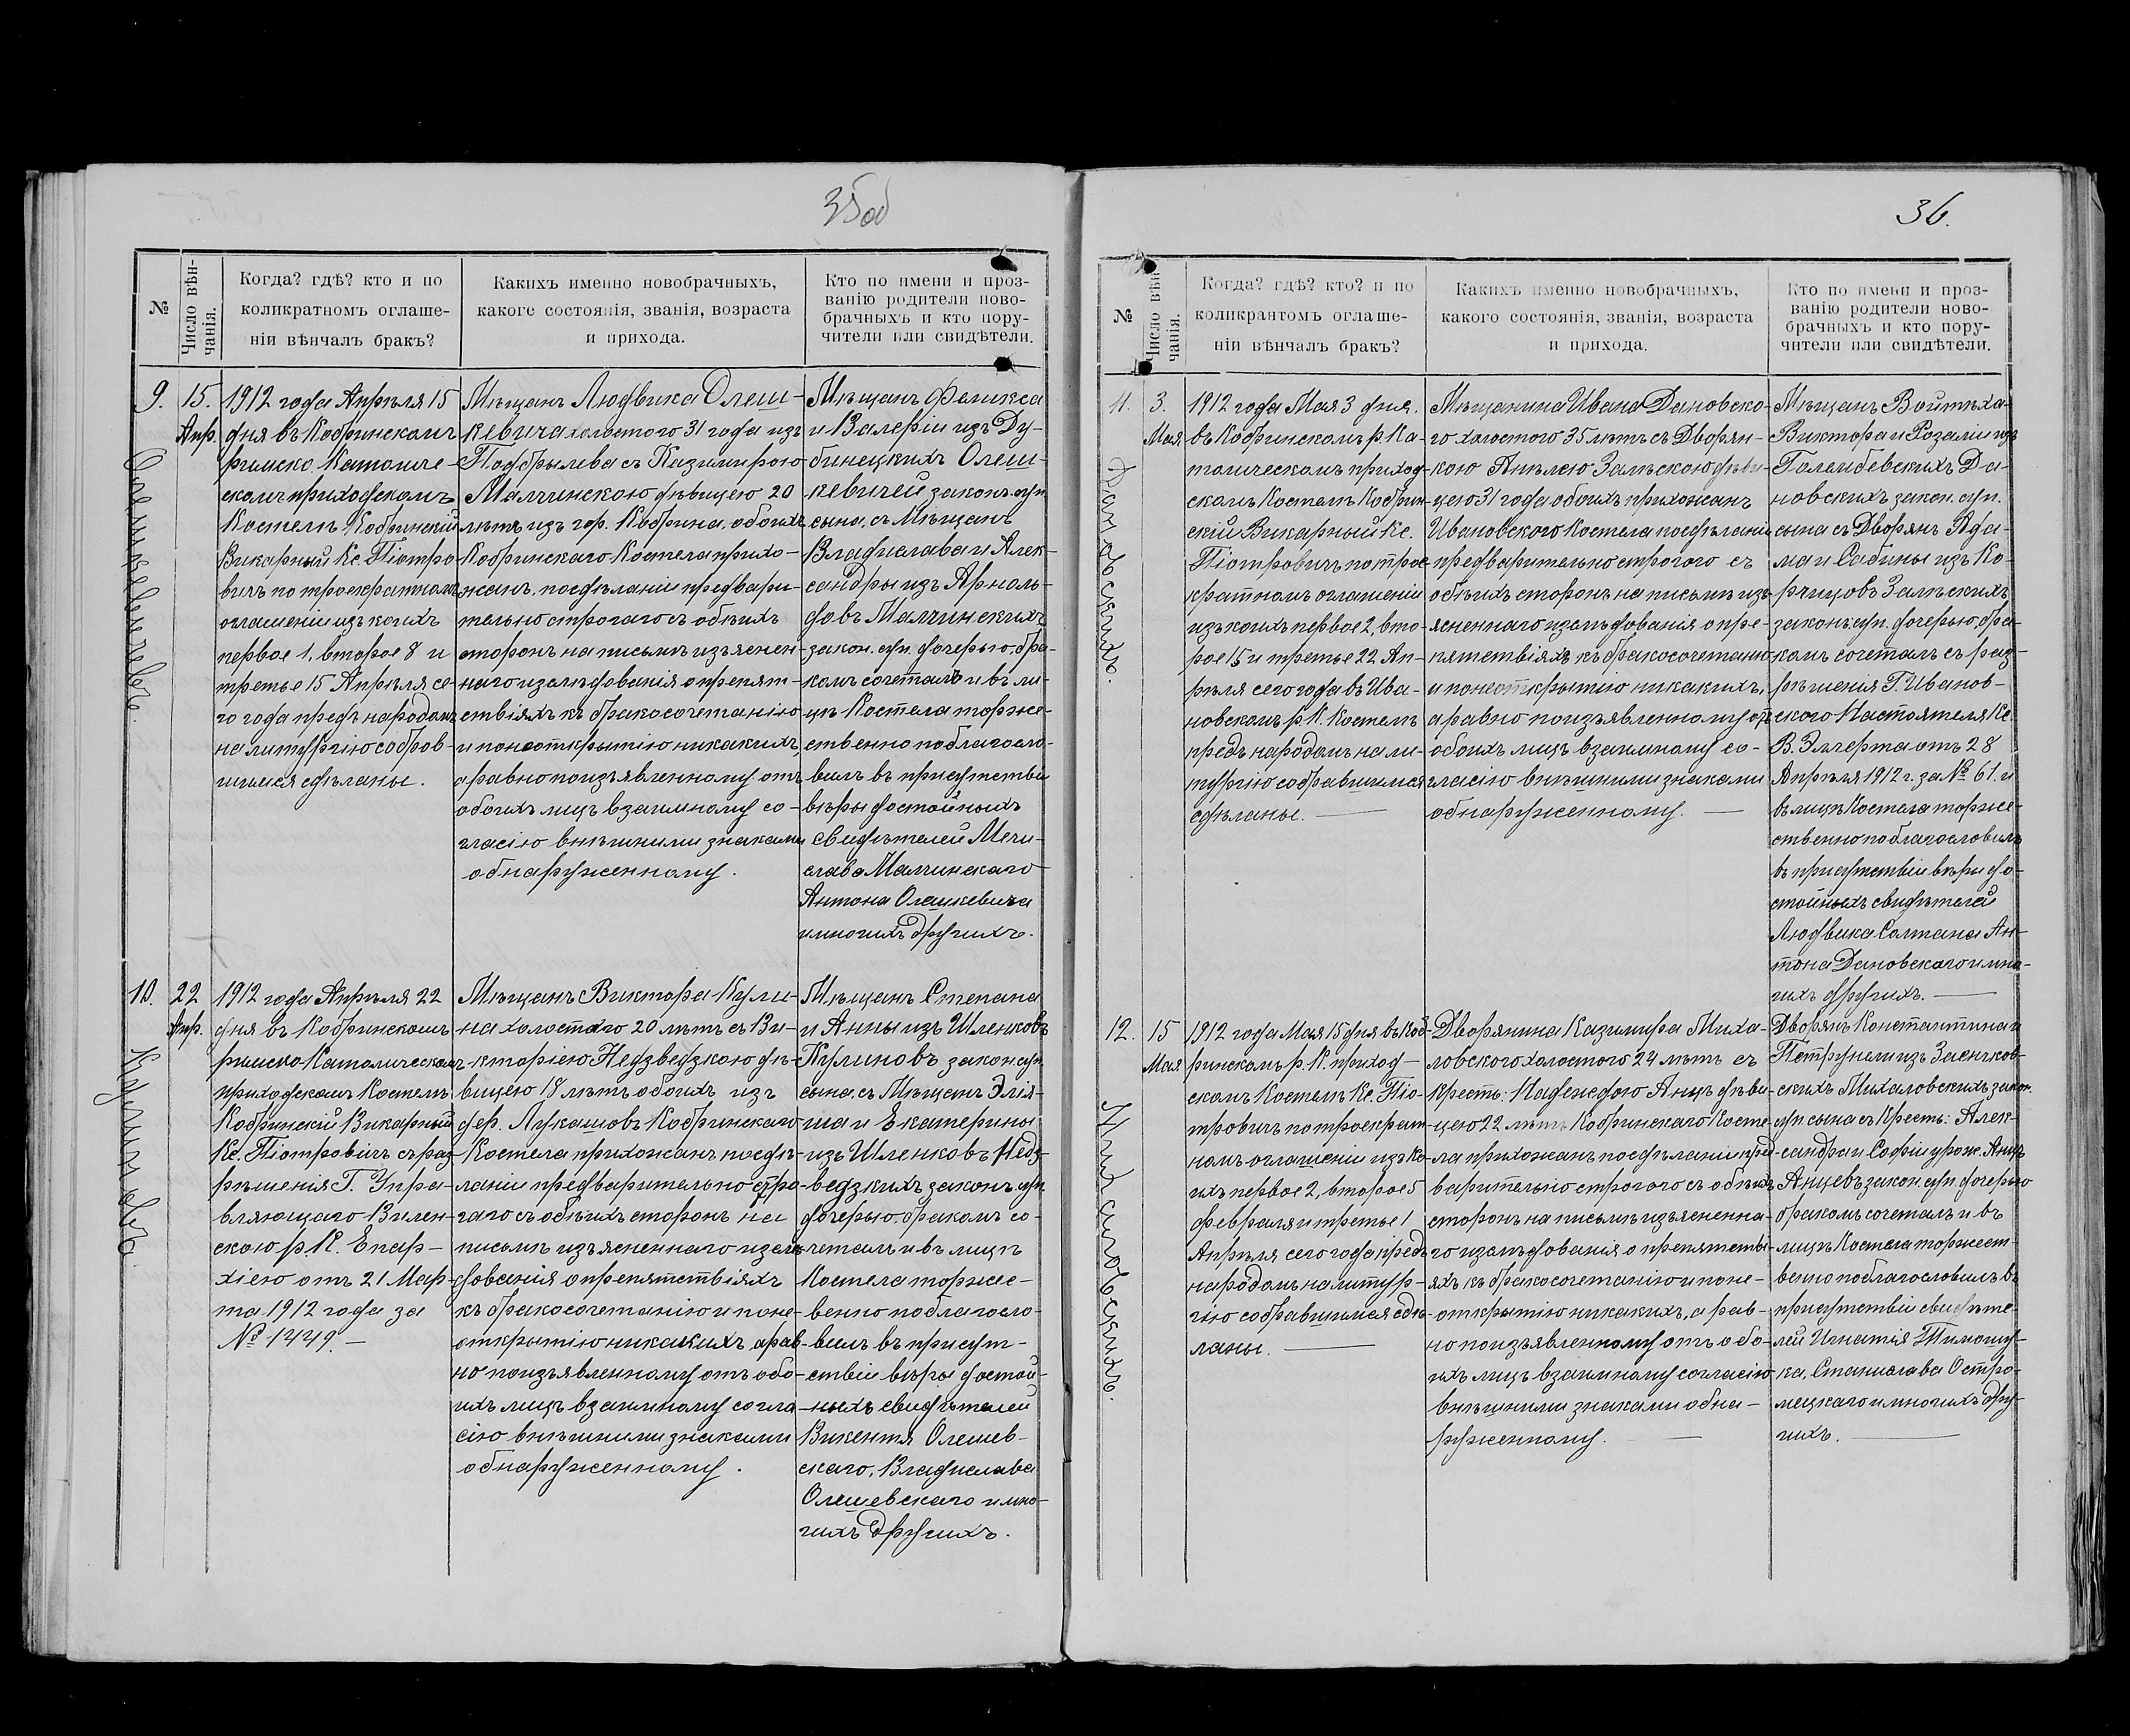 35об
№
Число вѣн-
чанія.
Когда? гдѣ? кто и по
коликратномъ оглаше-
ніи вѣнчалъ бракъ?
Какихъ именно новобрачныхъ,
какого состоянія, званія, возраста
и прихода.
Кто по имени и проз-
ванію родители ново-
брачныхъ и кто пору-
чители или свидѣтели.
9.
15.
Апр.
Олешкевичевъ.
1912 года Апрѣля 15
дня въ Кобринскомъ
римско Католиче-
скомъ приходскомъ
Костелѣ Кобринскій
Викарный Кс. Піотро
вичъ по троекратномъ
оглашеніи изъ коихъ
первое 1, второе 8 и
третье 15 Апрѣля се-
го года предъ народомъ
на литургію собрав-
шимся сдѣланы.
Мѣщанъ Людвика Олеш-
кевича холостого 31 года изъ
Поддрылева съ Казимирою
Малчинскою дѣвицею 20
лѣтъ изъ гор. Кобрина, обоихъ
Кобринскаго Костела прихо-
жанъ, посдѣланіи предвари-
тельно строгаго съ обѣихъ
сторонъ на письмѣ изъяснен-
наго изслѣдованія о препят-
ствіяхъ къ бракосочетанію
и по неоткрытію никакихъ,
а равно по изъявленному отъ
обоихъ лицъ взаимному со-
гласію внѣшними знаками
обнаруженному.
Мѣщанъ Феликса
и Валеріи изъ Ду-
бинецкихъ Олеш-
кевичей закон. суп.
сына, съ Мѣщанъ
Владислава и Алек-
сандры изъ Арноль-
довъ Малчинскихъ
закон. суп. дочерью, бра-
комъ сочеталъ и въ ли-
цѣ Костела торже-
ственно поблагосло-
вилъ въ присутствіи
вѣры достойныхъ
свидѣтелей Мечи-
слава Малчинскаго
Антона Олешкевича
и многихъ другихъ.
10.
22
Апр.
Кулиновъ.
1912 года Апрѣля 22
дня въ Кобринскомъ
римско-Католическомъ
приходскомъ Костелѣ
Кобринскій Викарный
Кс. Піотровичъ съ раз-
рѣшенія Г. Упра-
вляющаго Вилен-
скою р. К. Епар-
хіею отъ 21 Мар-
та 1912 года за
№ 1449.—
Мѣщанъ Виктора Кули-
на холостаго 20 лѣтъ съ Ви-
кторіею Недзведзкою дѣ-
вицею 18 лѣтъ обоихъ изъ
дер. Лукашовъ Кобринскаго
Костела прихожанъ посдѣ-
ланіи предварительно стро-
гаго съ обѣихъ сторонъ на
письмѣ изъясненнаго изслѣ-
дованія о препятствіяхъ
къ бракосочетанію и по не-
открытію никакихъ, а рав-
но по изъявленному отъ обо-
ихъ лицъ взаимному согла-
сію внѣшними знаками
обнаруженному.
Мѣщанъ Степана
и Анны изъ Шленковъ
Кулиновъ закон. суп.
сына, съ Мѣщанъ Элія-
ша и Екатерины
изъ Шленковъ Недз-
ведзкихъ законъ. суп.
дочерью, бракомъ со-
четалъ и въ лицѣ
Костела торже-
венно поблагосло-
вилъ въ присут-
ствіи вѣры достой-
ныхъ свидѣтелей
Викентія Олешев-
скаго, Владислава
Олешевскаго и мно-
гихъ другихъ.
36.
№
Число вѣн
чанія.
Когда? гдѣ? кто? и по
коликрантомъ оглаше-
ніи вѣнчалъ бракъ?
Какихъ именно новобрачныхъ,
какого состоянія, званія, возраста
и прихода.
Кто по имени и проз-
ванію родители ново-
брачныхъ и кто пору-
чители или свидѣтели.
11.
3.
Мая
Дановскихъ.
1912 года Мая 3 дня.
въ Кобринскомъ р. Ка-
толическомъ приход-
скомъ Костелѣ Кобрин-
скій Викарный Кс.
Піотровичъ по трое-
кратномъ оглашеніи
изъ коихъ первое 2, вто-
рое 15 и третье 22 Ап-
рѣля сего года въ Ива-
новскомъ р. К. Костелѣ
предъ народомъ на ли-
тургію собравшимся
сдѣланы.—
Мѣщанина Ивана Дановско-
го холостого 35 лѣтъ съ Дворян-
кою Анелею Залѣскою дѣви-
цею 31 года обоихъ прихожанъ
Ивановского Костела посдѣланіи
предварительно строгого съ
обѣихъ сторонъ на письмѣ изъ-
ясненнаго изслѣдованія о пре-
пятствіяхъ къ бракосочетанію
и по неоткрытію никакихъ,
а равно по изъявленному отъ
обоихъ лицъ взаимному со-
гласію внѣшними знаками
обнаруженному.—
Мѣщанъ Войтѣха-
Виктора и Розаліи изъ
Голембевскихъ Да-
новскихъ закон. суп.
сына съ Дворянъ Ада-
ма и Сабины изъ Ко-
рчицовъ Залѣскихъ
законъ. суп. дочерью, бра-
комъ сочеталъ съ раз-
рѣшенія Г. Иванов-
ского Настоятеля Кс.
В. Эллерта отъ 28
Апрѣля 1912 г. за № 61. и
въ лицѣ Костела торже-
ственно поблагословилъ
въ присутствіи вѣры до-
стойныхъ свидѣтелей
Людвика Солтана Ан-
тона Дановскаго и мно-
гихъ другихъ.—
12.
15
Мая
Михаловскихъ.
1912 года Мая 15 дня въ Коб-
ринскомъ р. К. приход-
скомъ Костелѣ Кс. Піо-
тровичъ по троекрат-
номъ оглашеніи изъ ко-
ихъ первое 2, второе 5
февраля и третье 1
Апрѣля сего года предъ
народомъ на литур-
гію собравшимся сдѣ-
ланы.—
Дворянина Казимира Миха-
ловского холостого 24 лѣтъ съ
Крестъ: Надеждою Анцъ дѣви-
цею 22 лѣтъ Кобринскаго Косте-
ла прихожанъ посдѣланіи пред-
варительно строгого съ обѣихъ
сторонъ на письмѣ изъясненна-
го изслѣдованія о препятстві-
яхъ къ бракосочетанію и по не-
открытію никакихъ, а рав-
но по изъявленному отъ обо-
ихъ лицъ взаимному согласію
внѣшними знаками обна-
руженному.—
Дворянъ Константина и
Петрунели изъ Зеленков-
скихъ Михаловскихъ закон.
суп. сына съ Крестъ: Алек-
сандра и Софіи урож. Анцъ
Анцевъ закон. суп. дочерью
бракомъ сочеталъ и въ
лицѣ Костела торжест-
венно поблагословилъ въ
присутствіи свидѣте-
лей Игнатія Тимошу-
ка, Станислава Остро-
мецкаго и многихъ дру-
гихъ.—